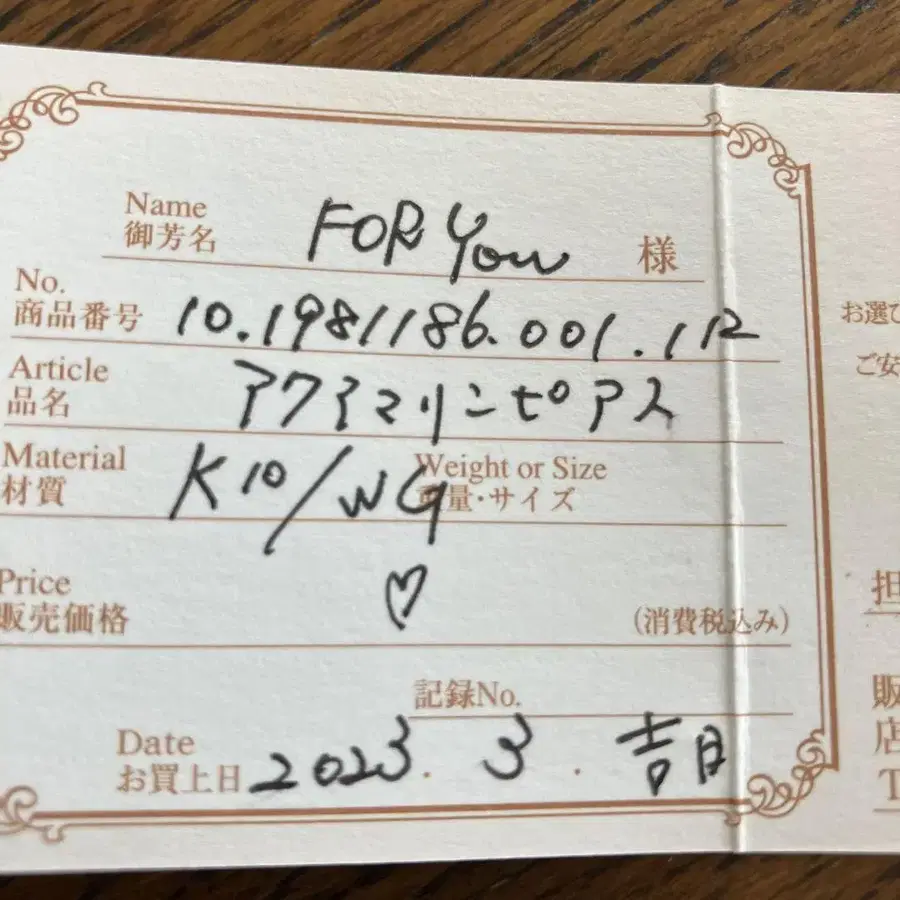 Name
御芳名 FOR You 様
No.
商品番号 10.1981186.001.112
Article
品名 アクアマリンピアス
Material Weight or Size
材質 K10/WG 重量・サイズ
Price
販売価格 ♡ (消費税込み)
記録No.
Date
お買上日 2023. 3. 吉日
お選び
ご安
担
販
店
T